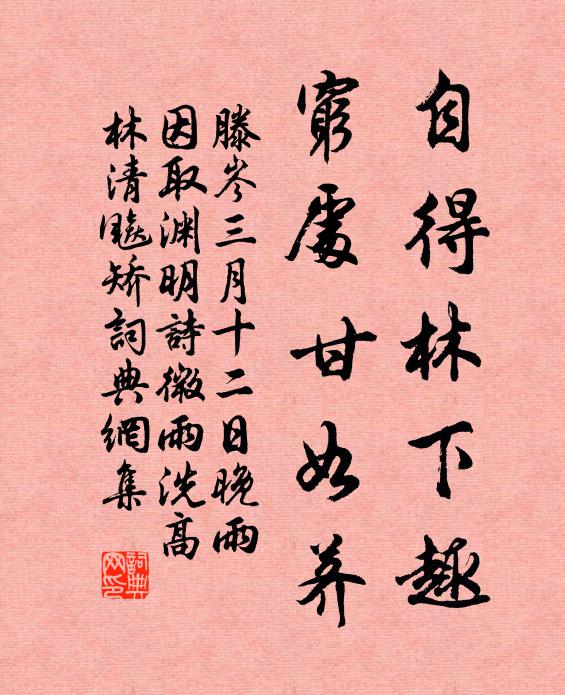 自得林下趣
窮處甘如荠
滕岑三月十二日晚雨
因取渊明詩微雨洗高
林清飈矯詞典網集
詞典网印